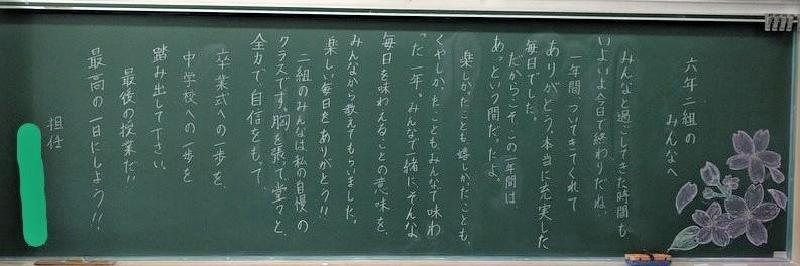 六年二組の
みんなへ
みんなと過ごしてきた時間も
いよいよ今日で終わりだね。
一年間ついてきてくれて
ありがとう。本当に充実した
毎日でした。
だからこそ、この一年間は
あっという間だったよ。
楽しかったことも嬉しかったことも、
くやしかったことも、みんなで味わ
った一年。みんなで一緒に、そんな
毎日を味わえることの意味を、
みんなから教えてもらいました。
楽しい毎日をありがとう!!
二組のみんなは私の自慢の
クラスです。胸を張って、堂々と、
全力で、自信をもって、
卒業式への一歩を、
中学校への一歩を
踏み出して下さい。
最後の授業だ!!
最高の一日にしよう!!
担任